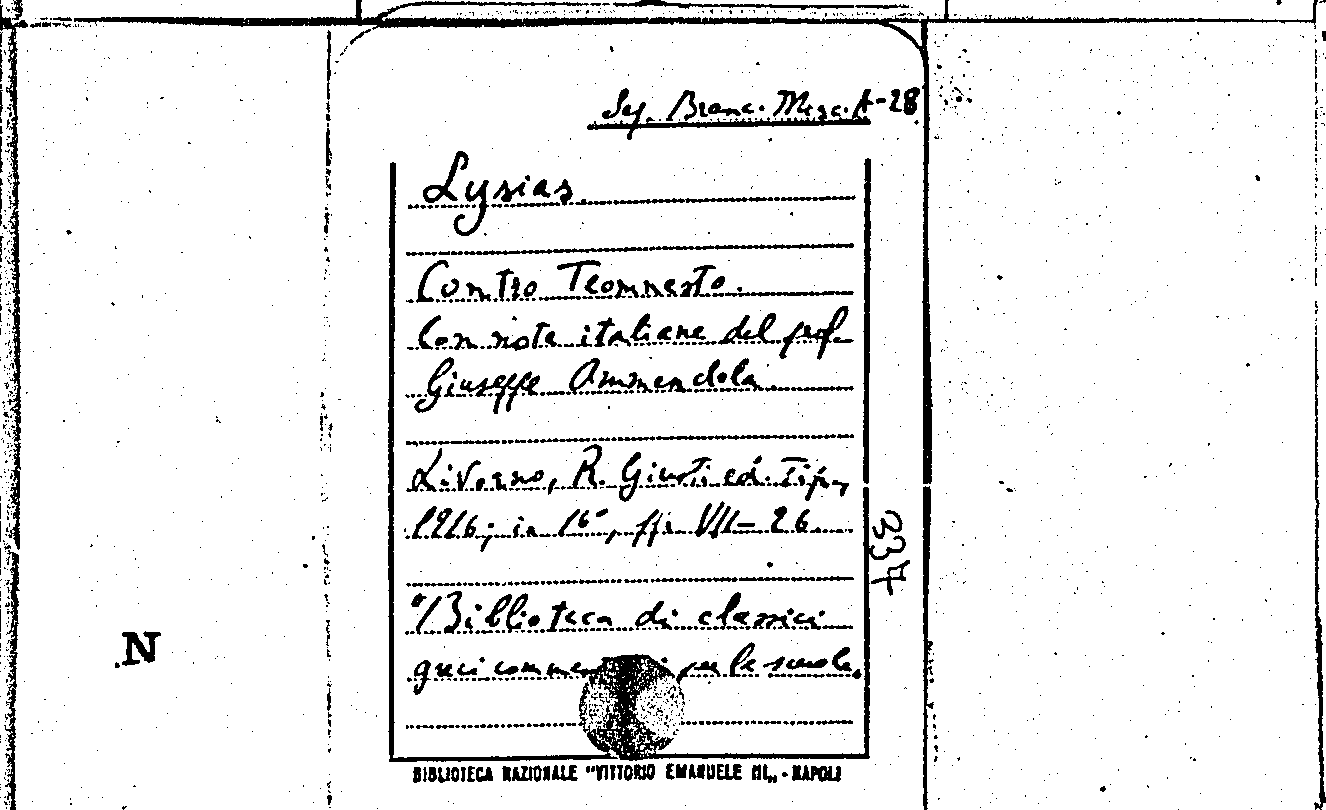 Sez. Branc. Misc. A-28
Lysias.
Contro Teomnesto.
Con note italiane del prof.
Giuseppe Ammendola.
Livorno, R. Giusti ed. Tip.,
1916; in 16°, pp. VII-26
337
"Biblioteca di classici
greci per le scuole.
N
BIBLIOTECA NAZIONALE "VITTORIO EMANUELE III„ - NAPOLI